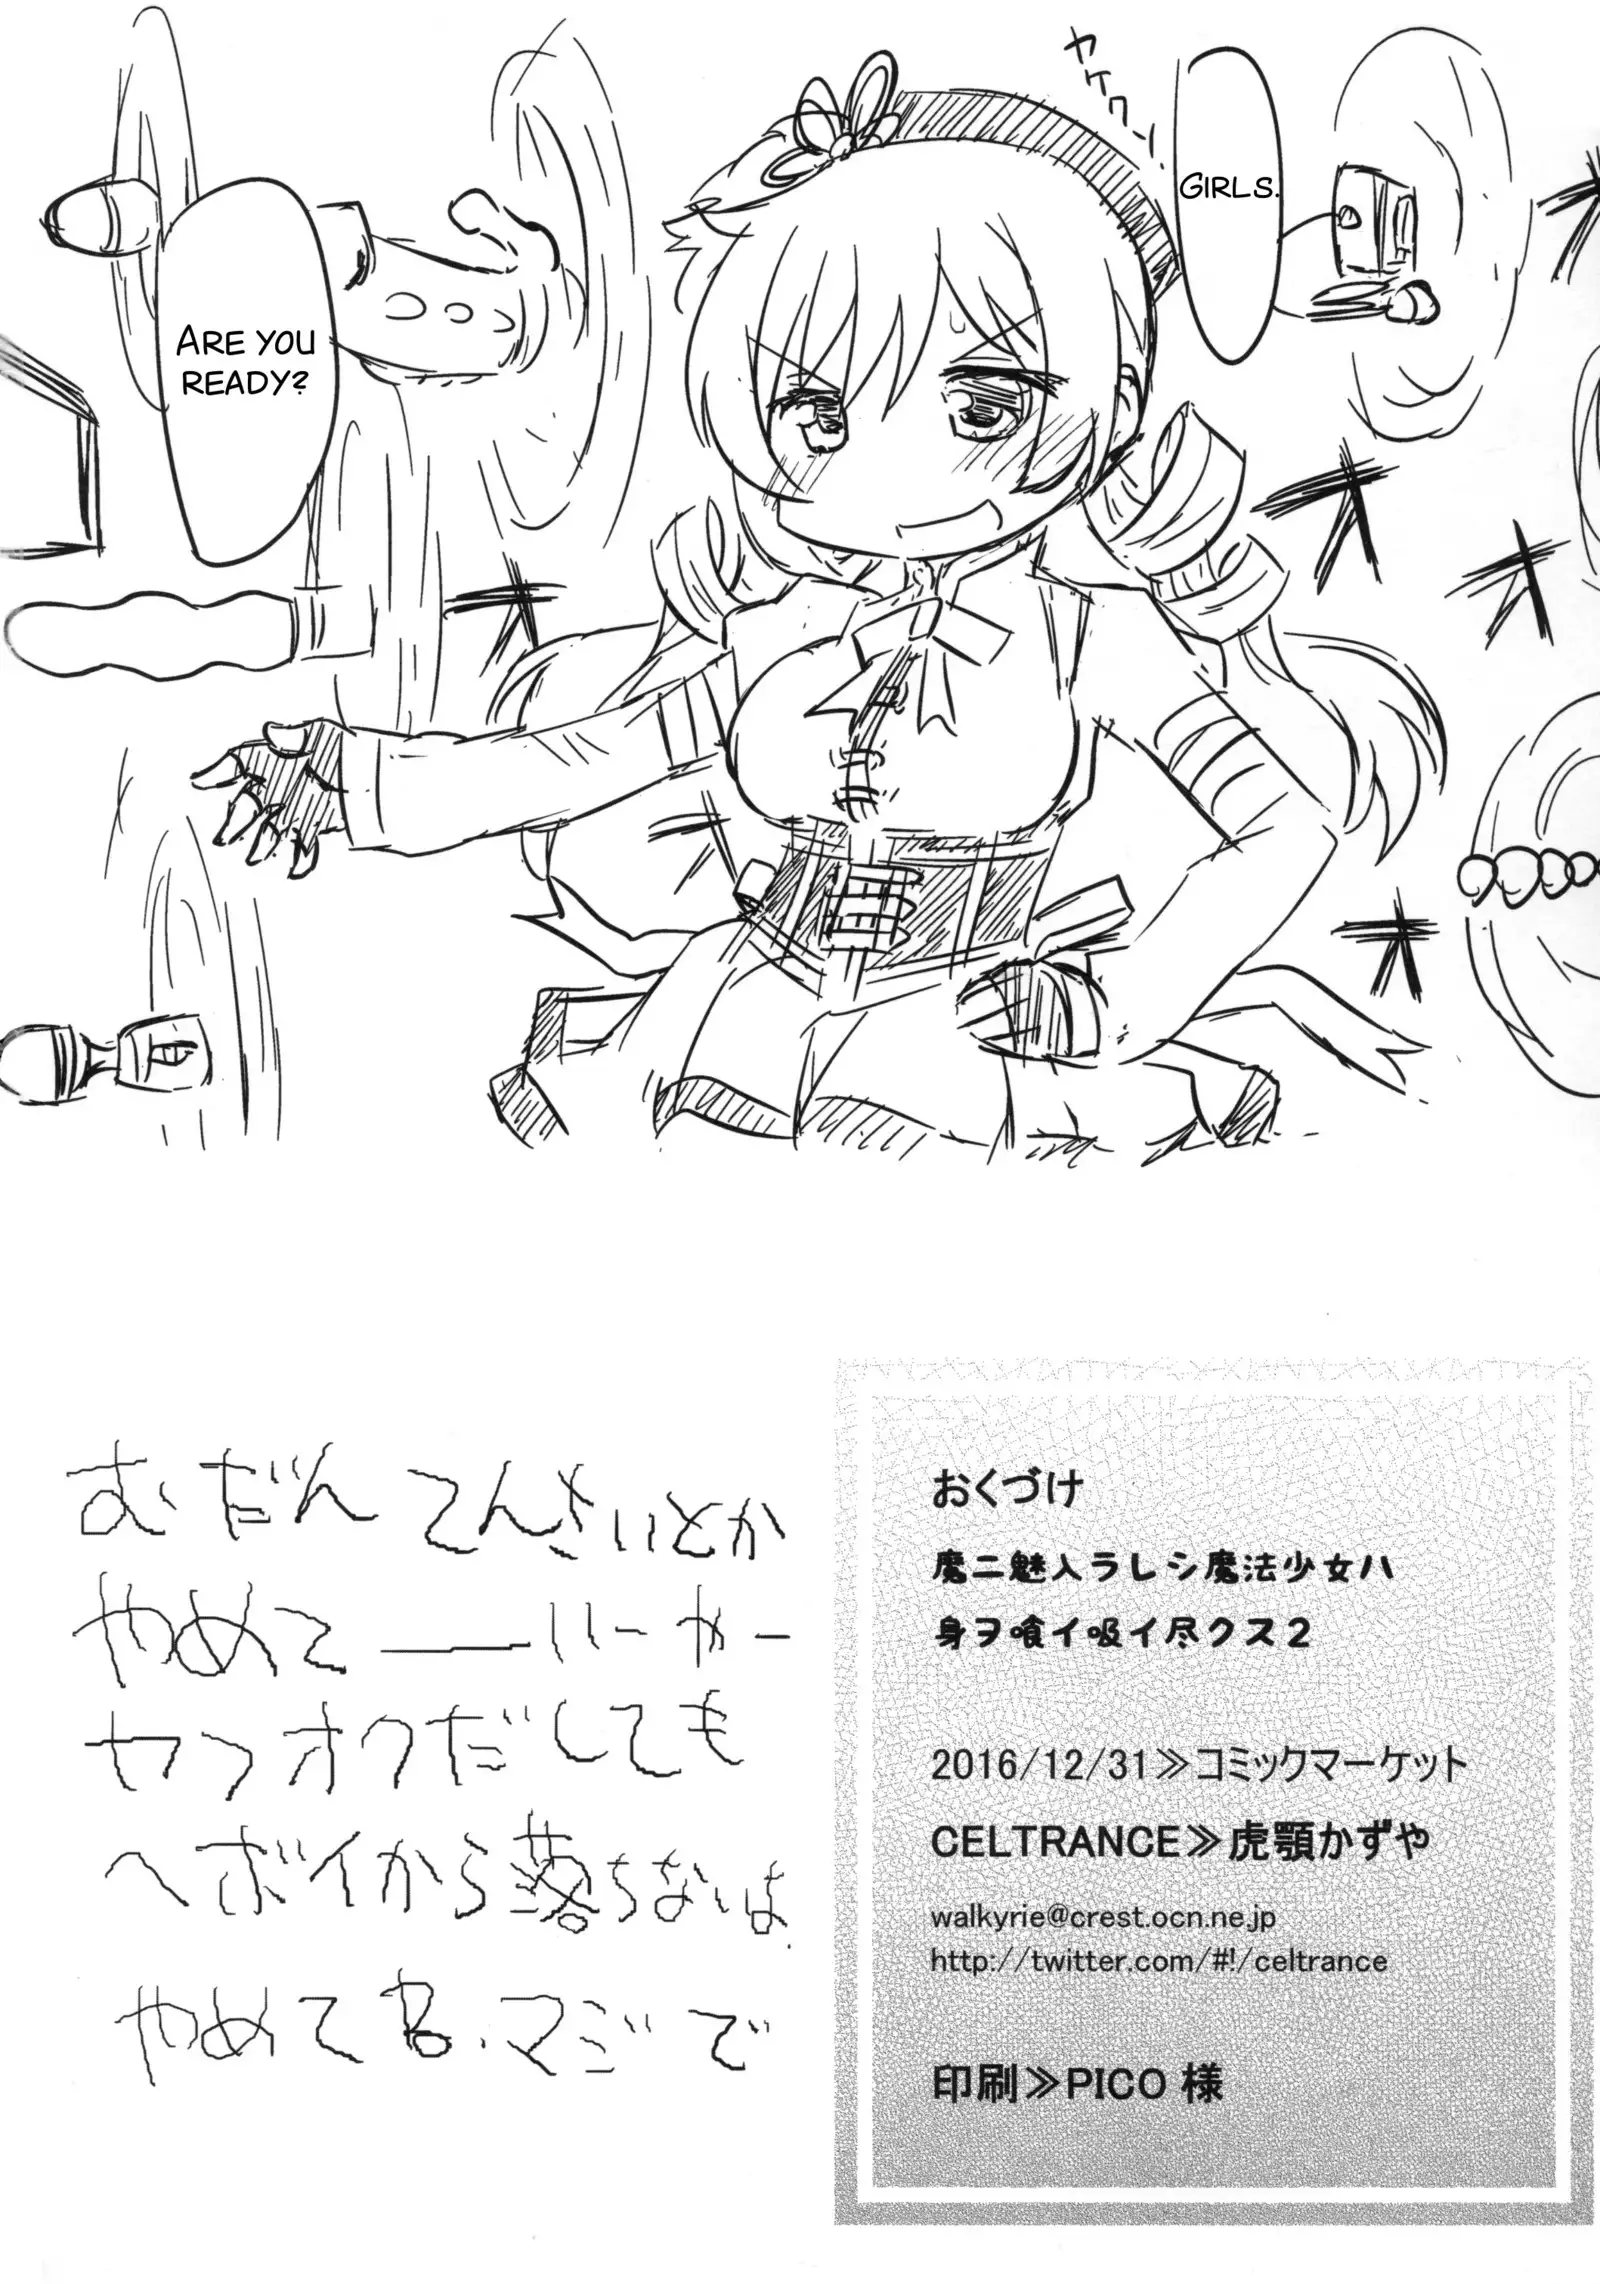 ヤケクソー
GIRLS.
ARE YOU
READY?
むだんてんさいとか
やめて――いーやー
ヤフオクだしても
ヘボイから落ちないよ
やめてね.マジで
おくづけ
魔ニ魅入ラレシ魔法少女ハ
身ヲ喰イ吸イ尽クス2
2016/12/31≫コミックマーケット
CELTRANCE≫虎顎かずや
walkyrie@crest.ocn.ne.jp
http://twitter.com/#!/celtrance
印刷≫PICO 様